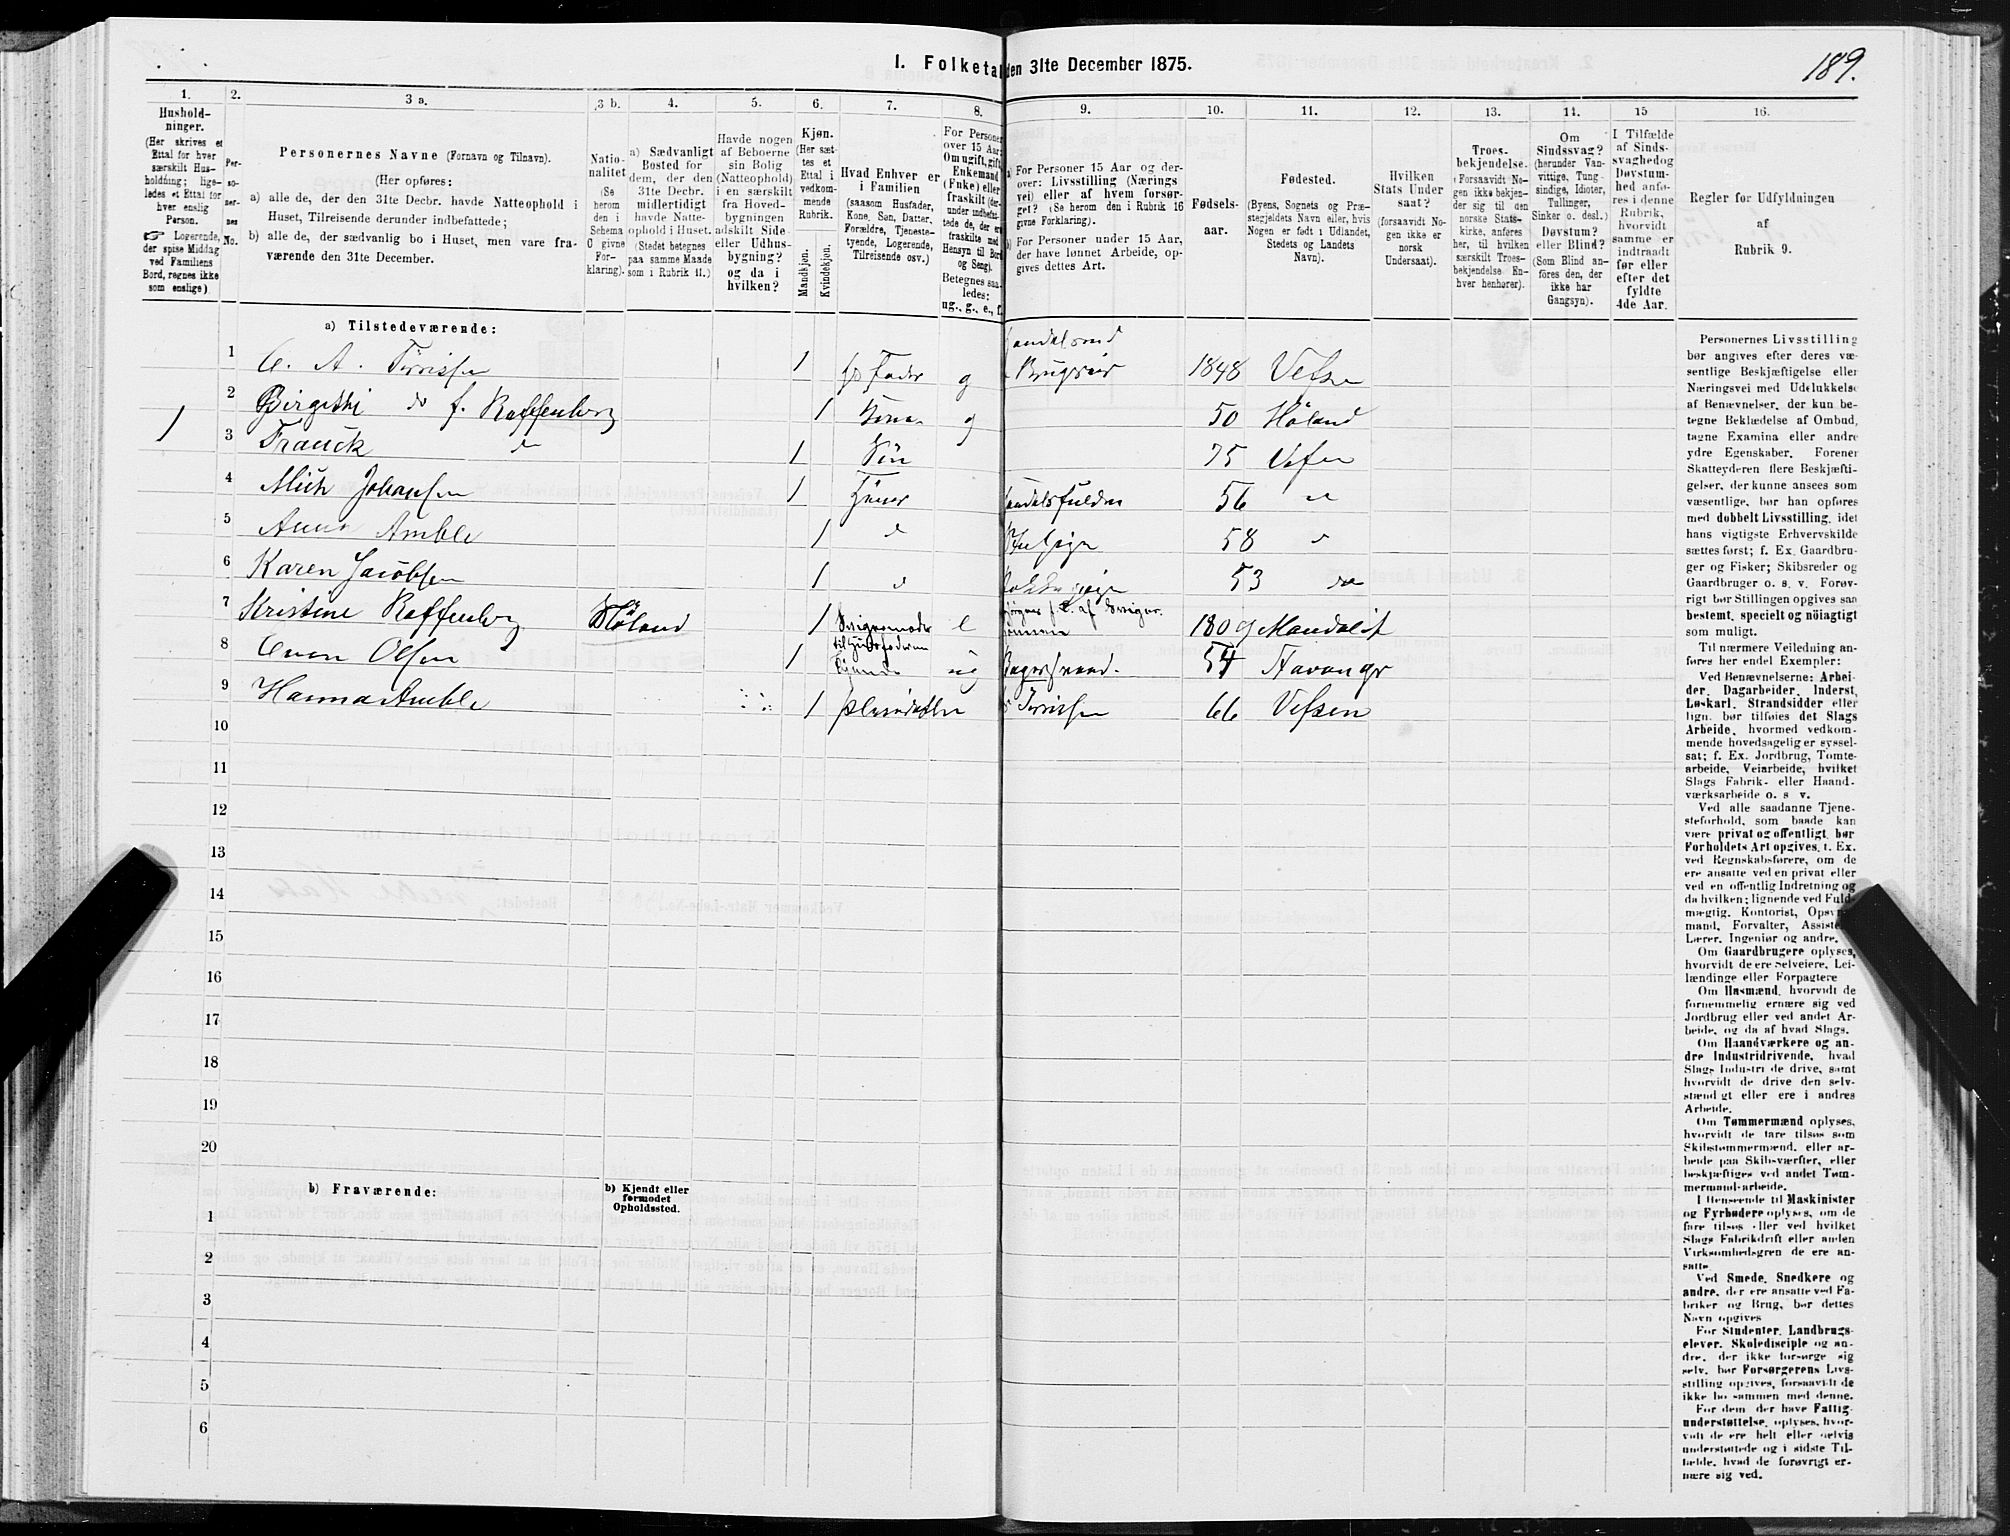 I. Folketal den 31te December 1875.
189.
1. 2. 3 a. 3 b. 4. 5. 6. 7. 8. 9. 10. 11. 12. 13. 14. 15 16.
Hushold-
ninger.
(Her skrives et
Ettal for hver
særskilt Hus-
holdning; lige-
ledes et Ettal for
hver enslig
Person.
☞ Logerende,
der spise Middag
ved Familiens
Bord, regnes ikke
som enslige)
Per-
so-
ner-
nes
No.
Personernes Navne (Fornavn og Tilnavn).
(Her opføres:
a) alle de, der den 31te Decbr. havde Natteophold i
Huset, Tilreisende derunder indbefattede;
b) alle de, der sædvanlig bo i Huset, men vare fra-
værende den 31te December.
Natio-
nalitet
(Se
herom
den i
Schema
O givne
For-
klaring).
a) Sædvanligt
Bosted for
dem, der den
31te Decbr.
midlertidigt
havde Natte-
ophold i Huset.
(Stedet betegnes
paa samme Maade
som i Rubrik 11.)
Havde nogen
af Beboerne
sin Bolig
(Natteophold)
i en særskilt
fra Hoved-
bygningen
adskilt Side-
eller Udhus-
bygning?
og da i
hvilken?
Kjøn.
(Her sæt-
tes et
Ettal i
vedkom-
mende
Rubrik.
Mandkjøn.
Kvindekjøn.
Hvad Enhver er
i Familien
(saasom Husfader,
Kone, Søn, Datter,
Forældre, Tjeneste-
tyende, Logerende,
Tilreisende osv.)
For Personer
over 15 Aar:
Om ugift, gift,
Enkemand
(Enke) eller
fraskilt (der-
under indbefat-
tede de, der ere
fraskilte med
Hensyn til Bord
og Seng).
Betegnes saa-
ledes:
ug., g., e., f.
a) For Personer 15 Aar og der-
over: Livsstilling (Nærings
vei) eller af hvem forsør-
get? (Se herom den i Rubrik 16
givne Forklaring).
b) For Personer under 15 Aar,
der have lønnet Arbeide, op-
gives dettes Art.
Fødsels-
aar.
Fødested.
(Byens, Sognets og Præ-
stegjeldets Navn eller, hvis
Nogen er født i Udlandet,
Stedets og Landets
Navn).
Hvilken
Stats Under
saat?
(forsaavidt No-
gen ikke er
norsk
Undersaat).
Troes-
bekjendelse.
(Forsaavidt No-
gen ikke bekjen-
der sig til den
norske Stats-
kirke, anføres
her, til hvilken
særskilt Troes-
bekjendelse En-
hver henhører).
Om
Sindssvag?
(herunder Van-
vittige, Tung-
sindige, Idioter,
Tullinger,
Sinker o. desl.)
Døvstum?
eller Blind?
(Som Blind an-
føres den, der
ikke har
Gangsyn).
I Tilfælde
af Sinds-
svaghed og
Døvstum-
hed anfø-
res i denne
Rubrik,
hvorvidt
samme er
indtraadt
før eller
efter det
fyldte
4de Aar.
Regler for Udfyldningen
af
Rubrik 9.
a) Tilstedeværende:
1 C. A. Tørrissen 1 g 1848
2 Birgithi do f. Raffenberg 1 Kone g 50 Høland
1
3 Franck do 1 Søn 75 Vefsen
4 Johansen 1 56 do
5 Anna Amble 1 do 58 do
6 Karen Jacobsen 1 do 53 do
7 Kristine Raffenberg Høland 1 Svigermoder til Husfaderen e 1809
8 Even Olsen 1 ug
9 Hanna Amble 1 Tørrissen 66 Vefsen
10
11
12
13
14
15
16
17
18
19
20
b) Fraværende:
b) Kjendt eller
formodet
Opholdssted.
1
2
3
4
5
6
Personernes Livsstilling
bør angives efter deres væ-
sentlige Beskjæftigelse eller
Næringsvei med Udelukkelse
af Benævnelser, der kun be-
tegne Beklædelse af Ombud,
tagne Examina eller andre
ydre Egenskaber. Forener
Skatteyderen flere Beskjæfti-
gelser, der kunne ansees som
væsentlige, bør han opføres
med dobbelt Livsstilling, idet
hans vigtigste Erhvervskilde
sættes først; f. Ex. Gaardbru-
ger og Fisker; Skibsreder og
Gaardbruger o. s. v. Forøv-
rigt bør Stillingen opgives saa
bestemt, specielt og nöiagtigt
som muligt.
Til nærmere Veiledning an-
føres her endel Exempler:
Ved Benævnelserne: Arbei-
der, Dagarbeider, Inderst,
Løskarl, Strandsidder eller
lign. bør tilføies det Slags
Arbeide, hvormed vedkom-
mende hovedsagelig er syssel-
sat; f. Ex. Jordbrug, Tomte-
arbeide, Veiarbeide, hvilket
Slags Fabrik- eller Haand-
værksarbeide o. s. v.
Ved alle saadanne Tjene-
steforhold, som baade kan
være privat og offentligt, bør
Forholdets Art opgives, f. Ex.
ved Regnskabsførere, om de
ere ansatte ved en privat eller
ved en offentlig Indretning og
da hvilken; lignende ved Fuld-
mægtig, Kontorist, Opsyns-
mand, Forvalter, Assistent,
Lærer, Ingeniør og andre.
Om Gaardbrugere oplyses,
hvorvidt de ere Selveiere, Lei-
lændinge eller Forpagtere
Om Husmænd, hvorvidt de
fornemmelig ernære sig ved
Jordbrug eller ved andet Ar-
beide, og da af hvad Slags.
Om Haandværkere og an-
dre Industridrivende, hvad
Slags Industri de drive, samt
hvorvidt de drive den selv-
stændigt eller ere i andres
Arbeide.
Om Tømmermænd oplyses,
hvorvidt de fare tilsøs som
Skibstømmermænd, eller ar-
beide paa Skibsværfter, eller
beskjæftiges ved andet Tøm-
mermand-arbeide.
I Henseende til Maskinister
og Fyrbødere oplyses, om de
fare tilsøs eller ved hvilket
Slags Fabrikdrift eller anden
Virksomhedsgren de ere an-
satte.
Ved Smede, Snedkere og
andre, der ere ansatte ved Fa-
briker og Brug, bør dettes
Navn opgives
For Studenter, Landbrugs-
elever, Skoledisciple og an-
dre, der ikke forsørge sig
selv, bør Forsørgerens Livs-
stilling opgives, forsaavidt de
ikke bo sammen med denne.
For dem, der have Fattig-
understøttelse, oplyses, hvor-
vidt de ere helt eller delvis
understøttede og i sidste Til-
fælde, hvad de forøvrigt er-
nære sig ved.